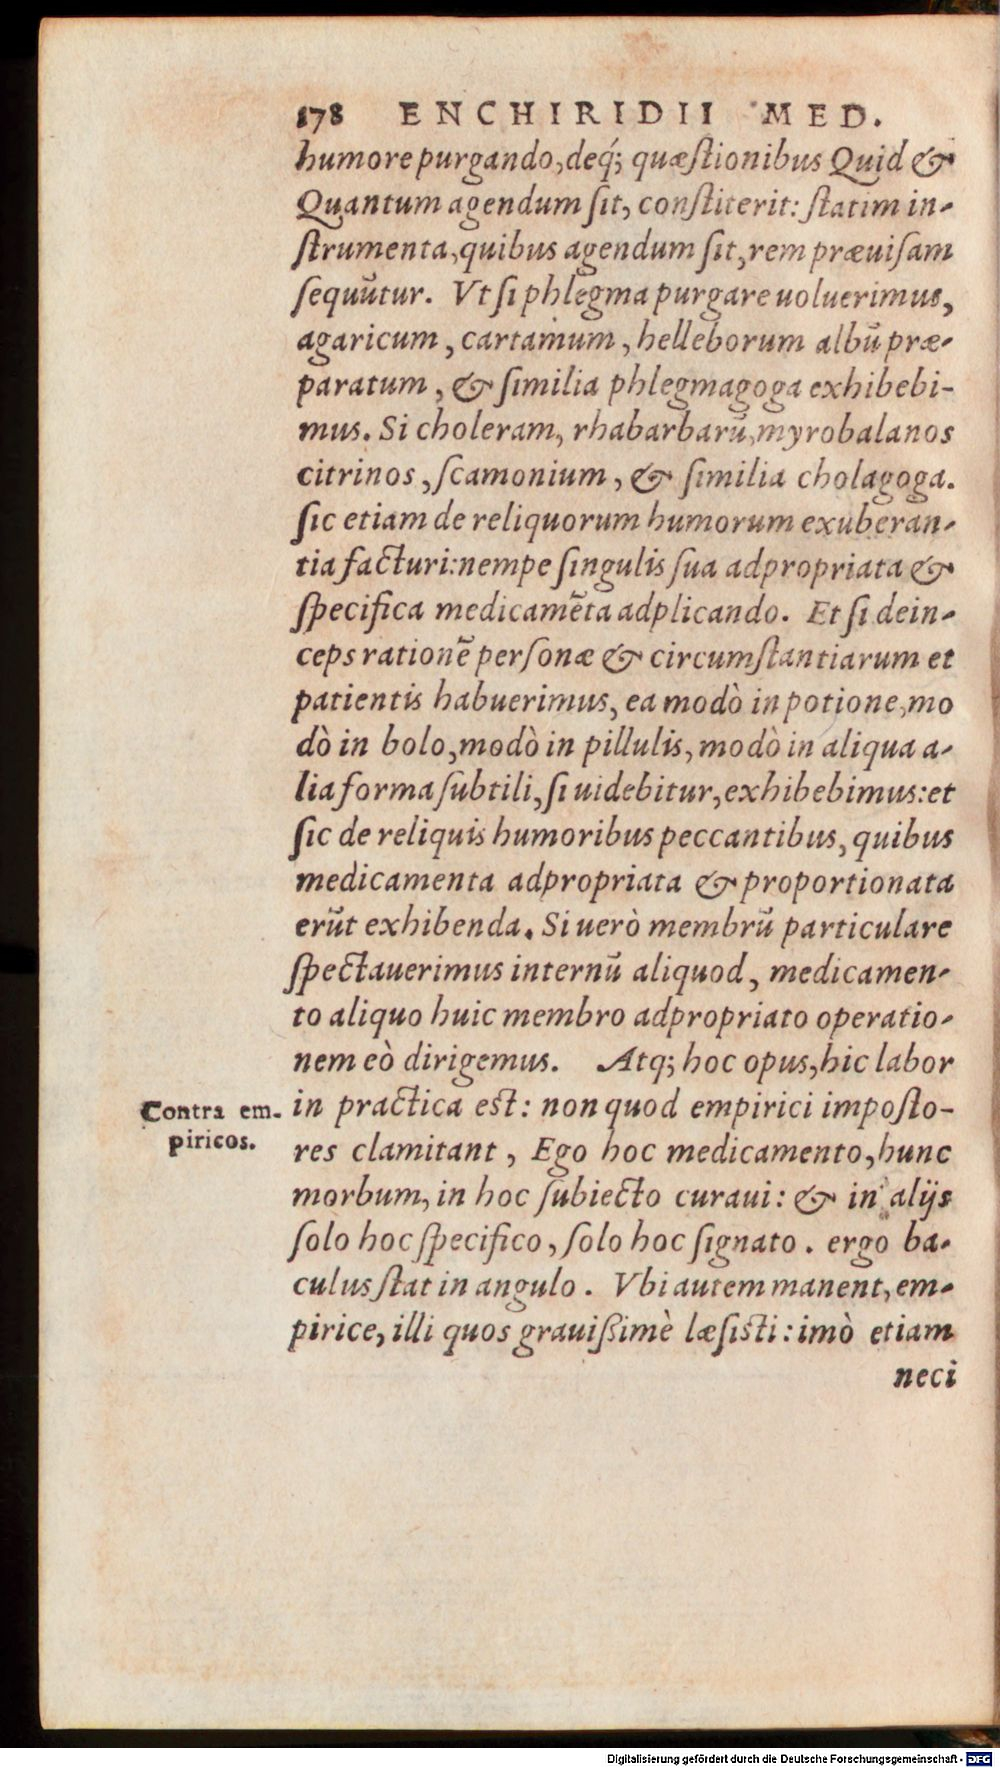 178 ENCHIRIDII MED.
humore purgando, deq́; quæſtionibus Quid &
Quantum agendum ſit, conſtiterit: ſtatim in-
ſtrumenta, quibus agendum ſit, rem præuiſam
ſequūtur. Vt ſi phlegma purgare uoluerimus,
agaricum, cartamum, helleborum albū præ-
paratum, & ſimilia phlegmagoga exhibebi-
mus. Si choleram, rhabarbarū, myrobalanos
citrinos, ſcamonium, & ſimilia cholagoga.
ſic etiam de reliquorum humorum exuberan-
tia facturi: nempe ſingulis ſua adpropriata &
ſpecifica medicamēta adplicando. Et ſi dein-
ceps rationē perſonæ & circumſtantiarum et
patientis habuerimus, ea modò in potione, mo
dò in bolo, modò in pillulis, modò in aliqua a-
lia forma ſubtili, ſi uidebitur, exhibebimus: et
ſic de reliquis humoribus peccantibus, quibus
medicamenta adpropriata & proportionata
erūt exhibenda. Si uerò membrū particulare
ſpectauerimus internū aliquod, medicamen-
to aliquo huic membro adpropriato operatio-
nem eò dirigemus. Atq; hoc opus, hic labor
Contra em-
piricos.
in practica est: non quod empirici impoſto-
res clamitant, Ego hoc medicamento, hunc
morbum, in hoc ſubiecto curaui: & in alijs
ſolo hoc ſpecifico, ſolo hoc ſignato. ergo ba-
culus ſtat in angulo. Vbi autem manent, em-
pirice, illi quos grauiſſimè læſisti: imò etiam
neci
Digitalisierung gefördert durch die Deutsche Forschungsgemeinschaft - DFG